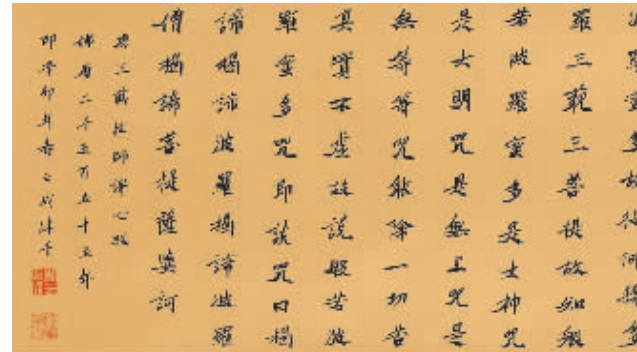 羅蜜多故得阿耨多
羅三藐三菩提故知般
若波羅蜜多是大神咒
是大明咒是無上咒是
無等等咒能除一切苦
真實不虛故說般若波
羅蜜多咒即說咒曰揭
諦揭諦波羅揭諦波羅
僧揭諦菩提薩婆訶
唐三藏法師譯心經
佛曆二千五百五十五年
即辛卯年春之